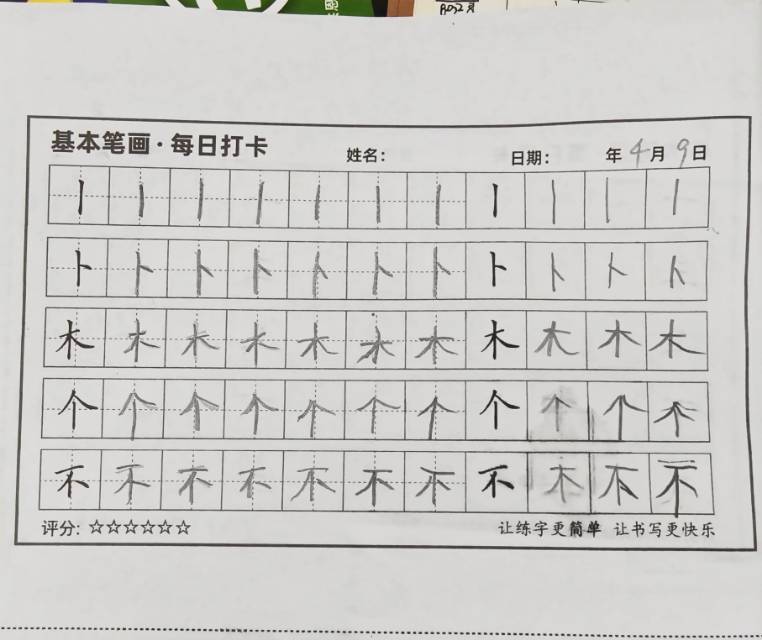 基本笔画·每日打卡 姓名： 日期： 年4月9日
丨丨丨丨丨丨丨丨丨丨丨
卜卜卜卜卜卜卜卜卜卜卜
木木木木木木木木木木木
个个个个个个个个个个个
不不不不不不不不木不不
评分：☆☆☆☆☆☆ 让练字更简单 让书写更快乐